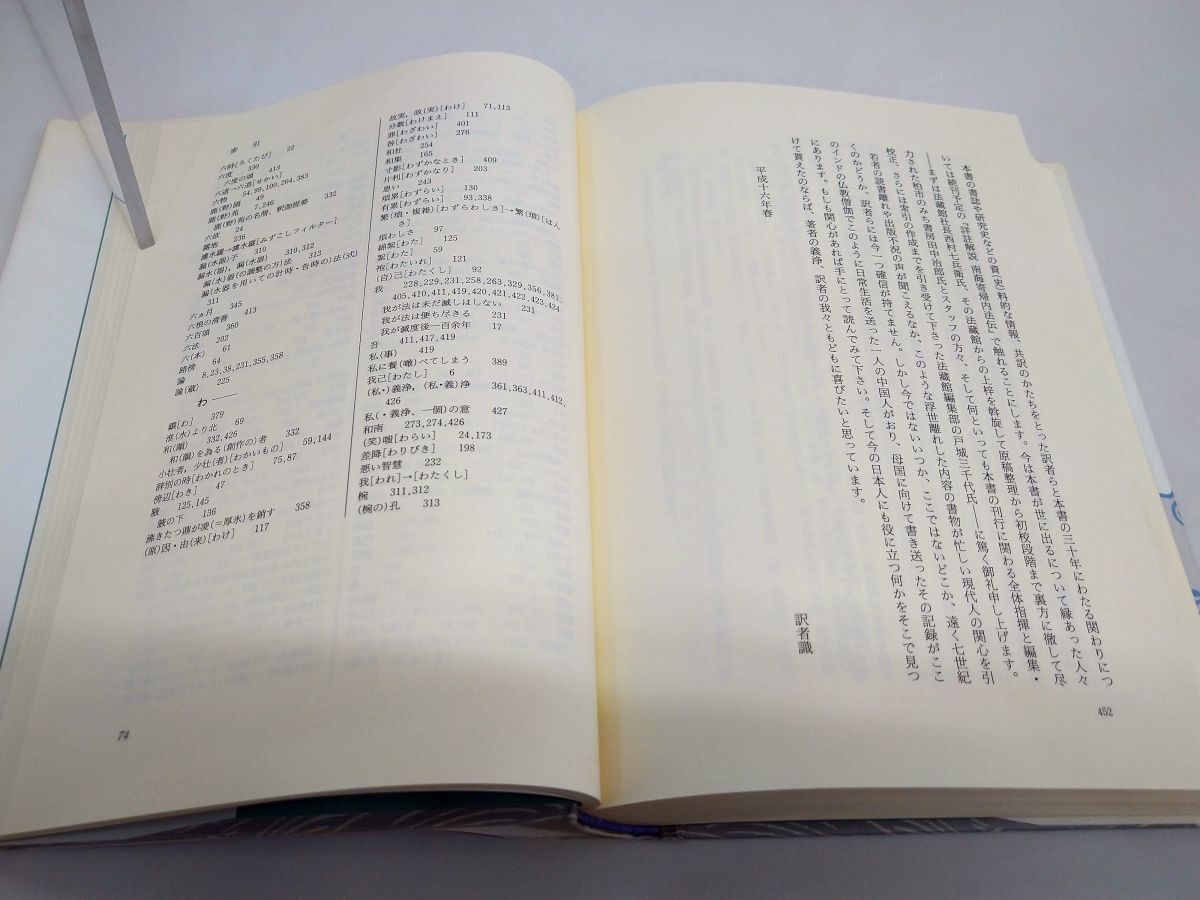 本書の書誌や研究史などの資(史)料的な情報、共訳のかたちをとった訳者らと本書の三十年にわたる関わりにつ
いては続刊予定の『詳註解説 南海寄帰内法伝』で触れることにします。今は本書が世に出るについて縁あった人々
――まずは法蔵館社長西村七兵衛氏、その法蔵館からの上梓を斡旋して原稿整理から初校段階まで裏方に徹して尽
力された柏市のみち書房田中治郎氏とスタッフの方々、そして何といっても本書の刊行に関わる全体指揮と編集・
校正、さらには索引の作成までを引き受けて下さった法蔵館編集部の戸城三千代氏――に篤く御礼申し上げます。
若者の読書離れや出版不況の声が聞こえるなか、このような浮世離れした内容の書物が忙しい現代人の関心を引
くのかどうか、訳者らには今一つ確信が持てません。しかし今ではないいつか、ここではないどこか、遠く七世紀
のインドの仏教僧伽でこのように日常生活を送った一人の中国人がおり、母国に向けて書き送ったその記録がここ
にあります。もしも関心があれば手にとって読んでみて下さい。そして今の日本人にも役に立つ何かをそこで見つ
けて貰えたのならば、著者の義浄、訳者の我々ともどもに喜びたいと思っています。
平成十六年春
訳者識
452
索 引
六時[ろくたび] 22
六度 330
六度の頌 413
六道→六道[せかい]
六物 54,99,100,204,383
鹿(野)園 49
鹿(野)苑 7,246
鹿(野)苑の名僧、釈迦提婆 332
六欲 24
露地 236
漉水羅→漉水羅[みずこしフィルター]
漏(水器)子 310
漏水(器), 漏(水器) 310,312
漏(水)器(の調整の方)法 313
漏(水器を用いての計時・告時の)法(式)
311
六ヵ月 345
六根の清善 413
六百頌 360
六法 202
六(本) 61
路傍 64
論 8,23,38,231,355,358
論(蔵) 225
わ――
鑊[わ] 379
淮(水)より北 69
和(韻) 332,426
和(韻)を為る(創作の)者 332
小壮者, 少壮(者)[わかいもの] 59,144
辞別の時[わかれのとき] 75,87
傍辺[わき] 47
腋 125,145
腋の下 136
沸きたつ鼎が凌(=厚氷)を銷す 358
(原)因・由(来)[わけ] 117
故実, 故(実)[わけ] 71,113
分数[わけまえ] 111
罪[わざわい] 401
咎[わざわい] 276
和社 254
和集 165
寸影[わずかなとき] 409
片利[わずかなり] 203
患い 243
煩累[わずらい] 130
有累[わずらい] 93,338
繁(瑣・複雑)[わずらわしさ]→繁(瑣)[はん
さ]
煩わしさ 97
綿絮[わた] 125
絮[わた] 59
袍[わたいれ] 121
(自)己[わたくし] 92
我 228,229,231,258,263,329,356,381,
405,410,411,419,420,421,422,423,424
我が法は未だ滅しはしない 231
我が法は便ち尽きる 231
我が滅度後一百余年 17
吾 411,417,419
私(事) 419
私に餐(噉)べてしまう 389
我己[わたし] 6
(私・)義浄, (私・義)浄 361,363,411,412,
426
私(・義浄、一個)の意 427
和南 273,274,426
(笑)嗤[わらい] 24,173
差降[わりびき] 198
悪い智慧 232
我[われ]→[わたくし]
椀 311,312
(椀の)孔 313
74